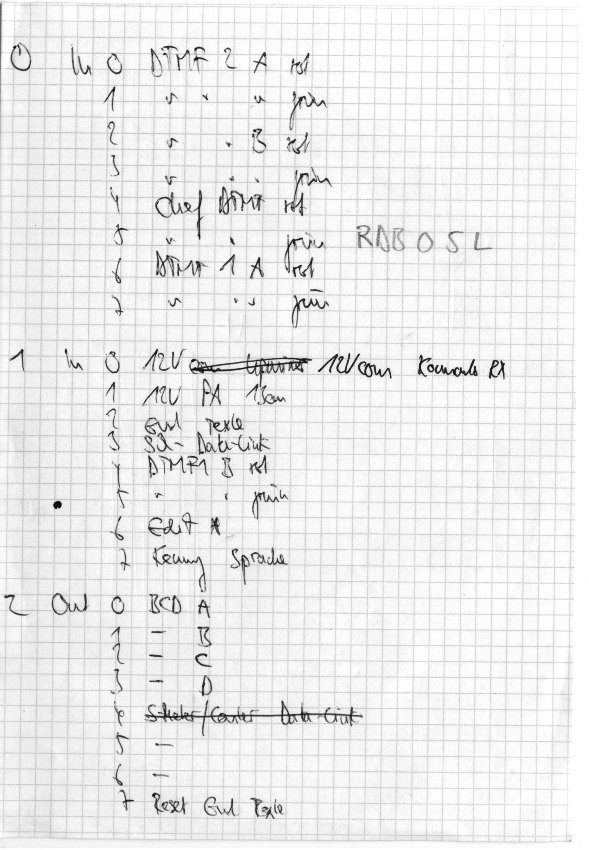 0 In 0 DTMF 2 A rot
1 " " " grün
2 " " B rot
3 " " " grün
4 Chef DTMF rot
5 " " grün
RDB 0 5 L
6 DTMF 1 A rot
7 " " " grün
1 In 0 12V 12Vcom Komando RX
1 12V PA 13cm
2 Texte
3 Data-Link
4 DTMF1 B rot
5 " " grün
6 Edit A
7 Kennung Sprache
2 Out 0 BCD A
1 – B
2 – C
3 – D
4 S-Meter/Center Data-Link
5 –
6 –
7 Reset Texte